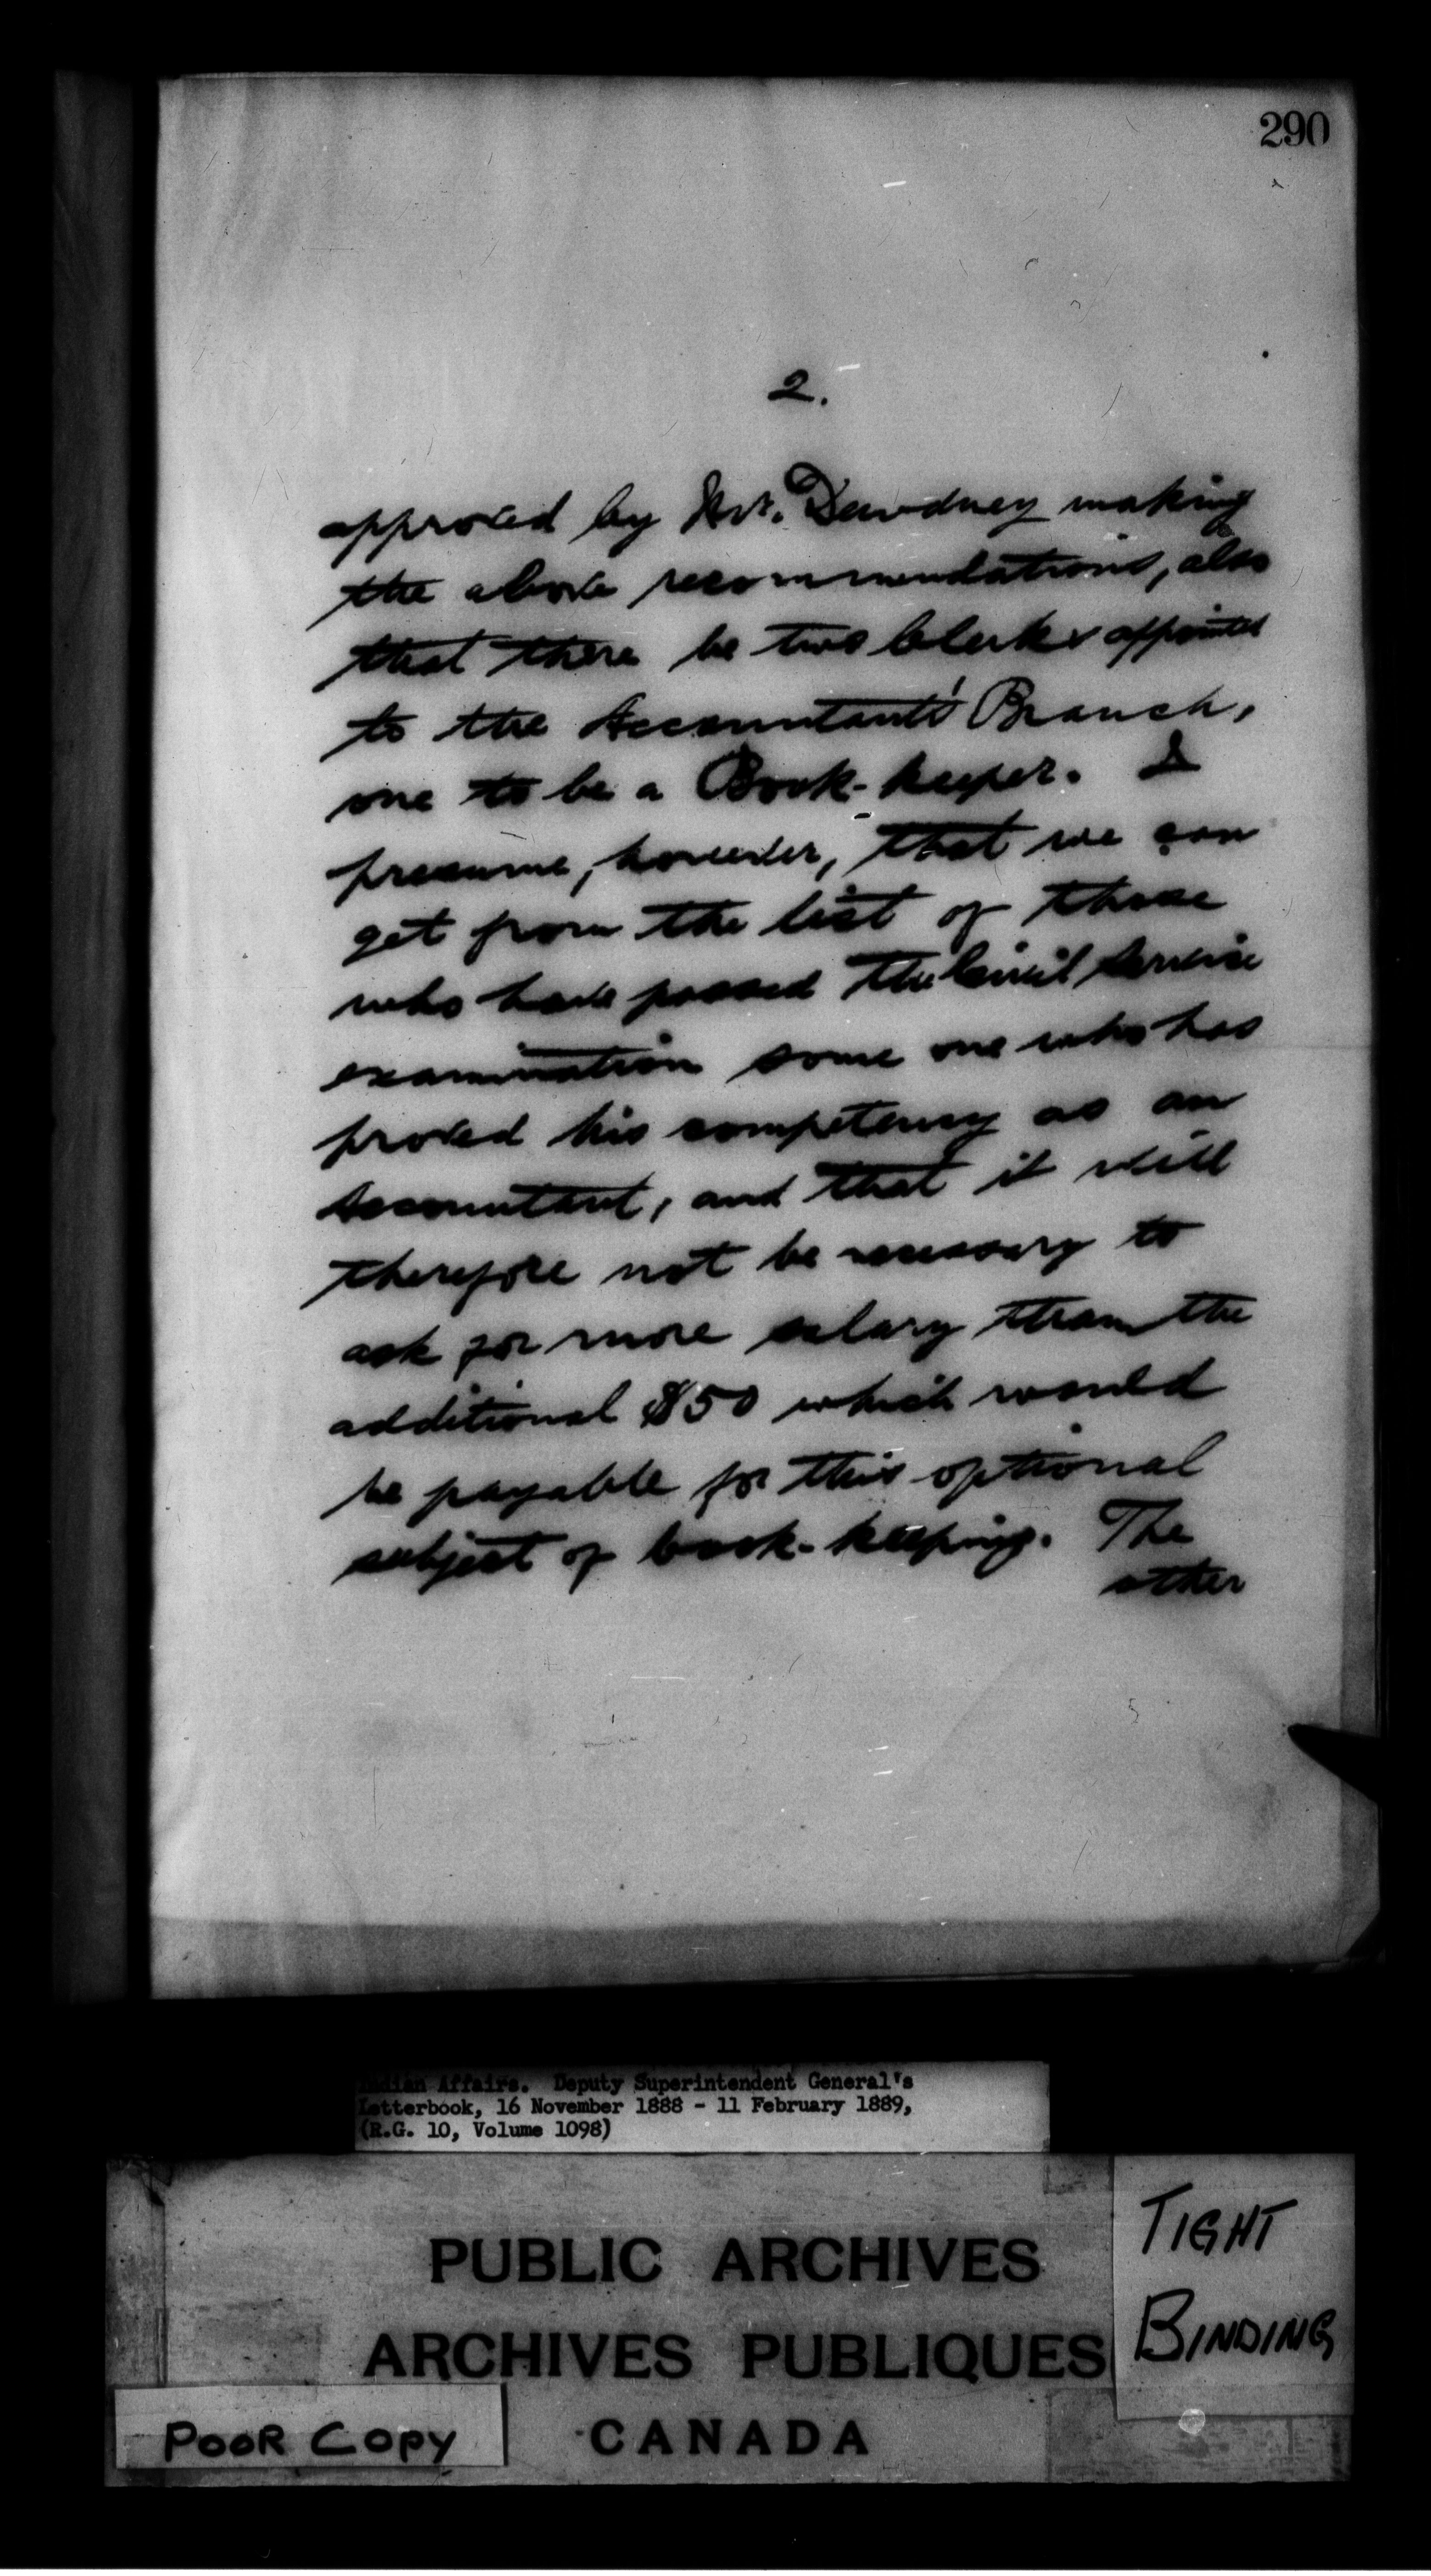 290
2.
approved by Mr. Dewdney making
the above recommendations, also
that there be two Clerks appointed
to the Accountant's Branch,
one to be a Book-keeper. I
presume, however, that we can
get from the list of those
who have passed the Civil Service
examination some one who has
proved his competency as an
Accountant, and that it will
therefore not be necessary to
ask for more salary than the
additional $50 which would
be payable for this optional
subject of book-keeping. The
other
Indian Affairs. Deputy Superintendent General's
Letterbook, 16 November 1888 - 11 February 1889,
(R.G. 10, Volume 1098)
PUBLIC ARCHIVES
ARCHIVES PUBLIQUES
CANADA
TIGHT
BINDING
POOR COPY